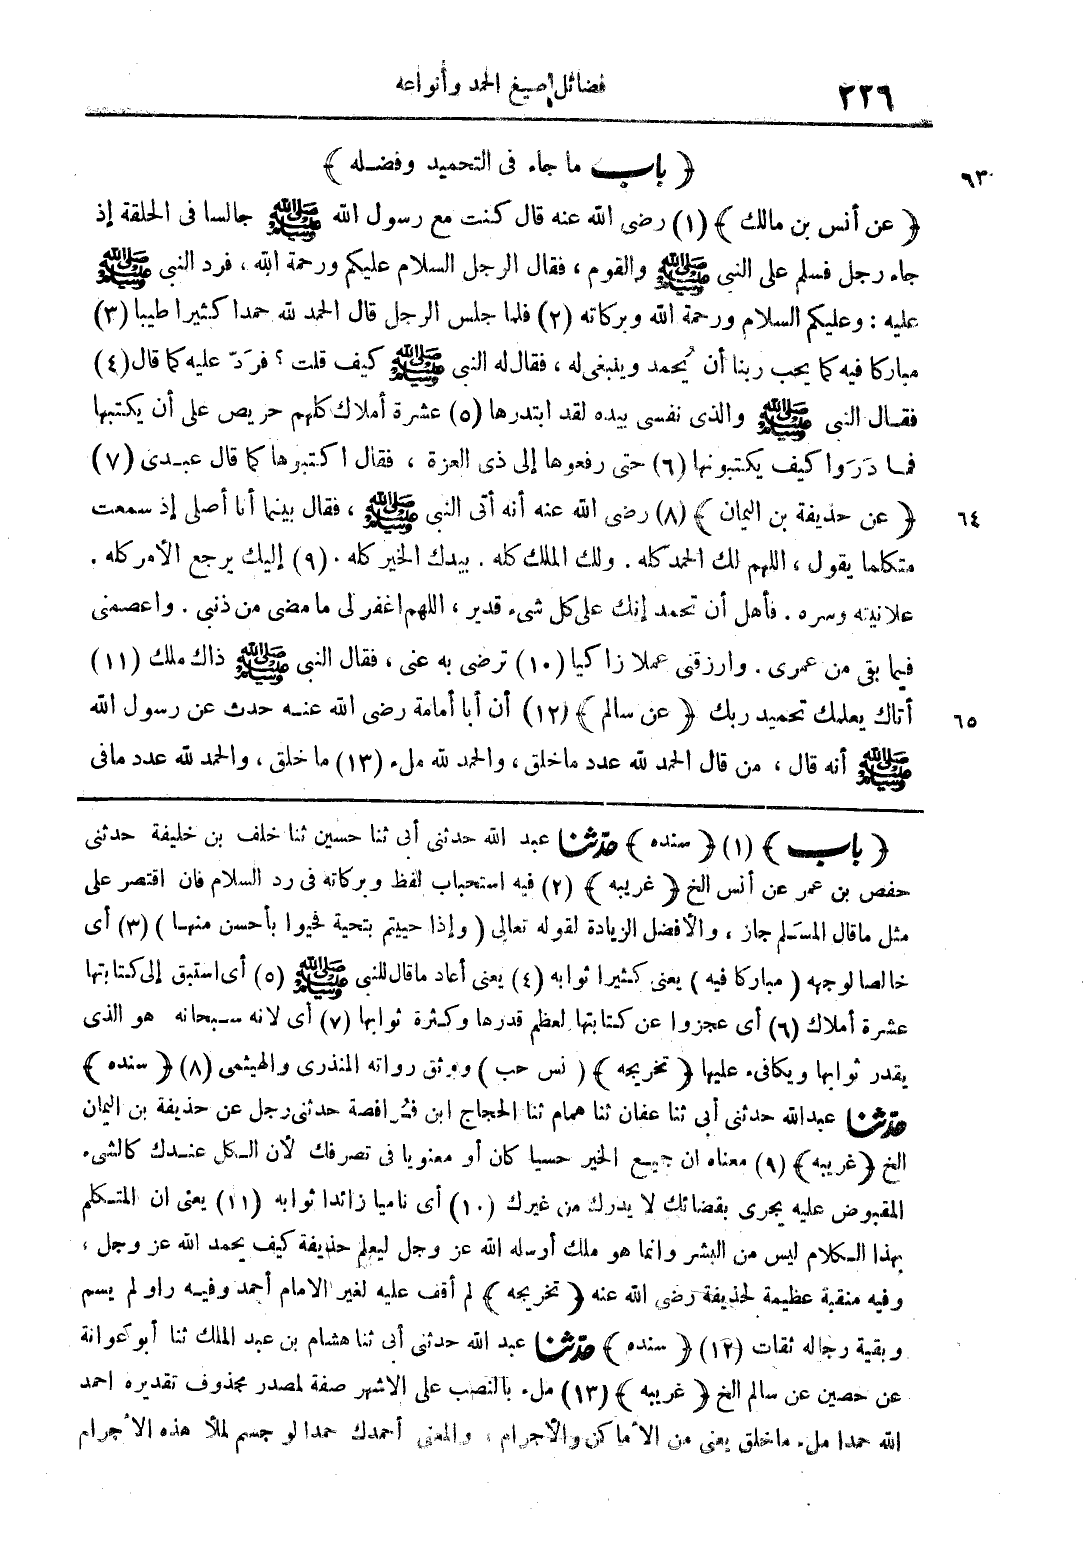 ٢٢٦
فضائل صيغ الحمد وأنواعه
﴿ باب ما جاء فى التحميد وفضله ﴾
٦٣ ﴿ عن أنس بن مالك ﴾ (١) رضى الله عنه قال كنت مع رسول الله ﷺ جالسا فى الحلقة إذ
جاء رجل فسلم على النبى ﷺ والقوم ، فقال الرجل السلام عليكم ورحمة الله ، فرد النبى ﷺ
عليه : وعليكم السلام ورحمة الله وبركاته (٢) فلما جلس الرجل قال الحمد لله حمدا كثيرا طيبا (٣)
مباركا فيه كما يحب ربنا أن يُحمد وينبغى له ، فقال له النبى ﷺ كيف قلت ؟ فردّ عليه كما قال (٤)
فقال النبى ﷺ والذى نفسى بيده لقد ابتدرها (٥) عشرة أملاك كلهم حريص على أن يكتبها
فما دَرَوا كيف يكتبونها (٦) حتى رفعوها إلى ذى العزة ، فقال اكتبوها كما قال عبدى (٧)
٦٤ ﴿ عن حذيفة بن اليمان ﴾ (٨) رضى الله عنه أنه أتى النبى ﷺ ، فقال بينما أنا أصلى إذ سمعت
متكلما يقول ، اللهم لك الحمد كله . ولك الملك كله . بيدك الخير كله . (٩) إليك يرجع الأمر كله .
علانيته وسره . فأهل أن تحمد إنك على كل شىء قدير ، اللهم اغفر لى ما مضى من ذنبى . واعصمنى
فيما بقى من عمرى . وارزقنى عملا زاكيا (١٠) ترضى به عنى ، فقال النبى ﷺ ذاك ملك (١١)
٦٥ أتاك يعلمك تحميد ربك ﴿ عن سالم ﴾ (١٢) أن أبا أمامة رضى الله عنه حدث عن رسول الله
ﷺ أنه قال ، من قال الحمد لله عدد ما خلق ، والحمد لله ملء (١٣) ما خلق ، والحمد لله عدد مافى
﴿ باب ﴾ (١) ﴿ سنده ﴾ حدّثنا عبد الله حدثنى أبى ثنا حسين ثنا خلف بن خليفة حدثنى
حفص بن عمر عن أنس الخ ﴿ غريبه ﴾ (٢) فيه استحباب لفظ وبركاته فى رد السلام فان اقتصر على
مثل ماقال المسلم جاز ، والأفضل الزيادة لقوله تعالى ( وإذا حييتم بتحية فحيوا بأحسن منها ) (٣) أى
خالصا لوجهه ( مباركا فيه ) يعنى كثيرا ثوابه (٤) يعنى أعاد ماقال للنبى ﷺ (٥) أى استبق إلى كتابتها
عشرة أملاك (٦) أى عجزوا عن كتابتها لعظم قدرها وكثرة ثوابها (٧) أى لانه سبحانه هو الذى
يقدر ثوابها ويكافىء عليها ﴿ تخريجه ﴾ ( نس حب ) ووثق رواته المنذرى والهيثمى (٨) ﴿ سنده ﴾
حدّثنا عبدالله حدثنى أبى ثنا عفان ثنا همام ثنا الحجاج ابن فُرافصة حدثنى رجل عن حذيفة بن اليمان
الخ ﴿ غريبه ﴾ (٩) معناه ان جميع الخير حسيا كان أو معنويا فى تصرفك لأن الكل عندك كالشىء
المقبوض عليه يجرى بقضائك لا يدرك من غيرك (١٠) أى ناميا زائدا ثوابه (١١) يعنى ان المتكلم
بهذا الكلام ليس من البشر وانما هو ملك أرسله الله عز وجل ليعلم حذيفة كيف يحمد الله عز وجل ،
وفيه منقبة عظيمة لحذيفة رضى الله عنه ﴿ تخريجه ﴾ لم أقف عليه لغير الامام أحمد وفيه راو لم يسم
وبقية رجاله ثقات (١٢) ﴿ سنده ﴾ حدّثنا عبد الله حدثنى أبى ثنا هشام بن عبد الملك ثنا أبو عوانة
عن حصين عن سالم الخ ﴿ غريبه ﴾ (١٣) ملء بالنصب على الاشهر صفة لمصدر محذوف تقديره احمد
الله حمدا ملء ماخلق يعنى من الأماكن والأجرام ، والمعنى أحمدك حمدا لو جسم لملأ هذه الأجرام